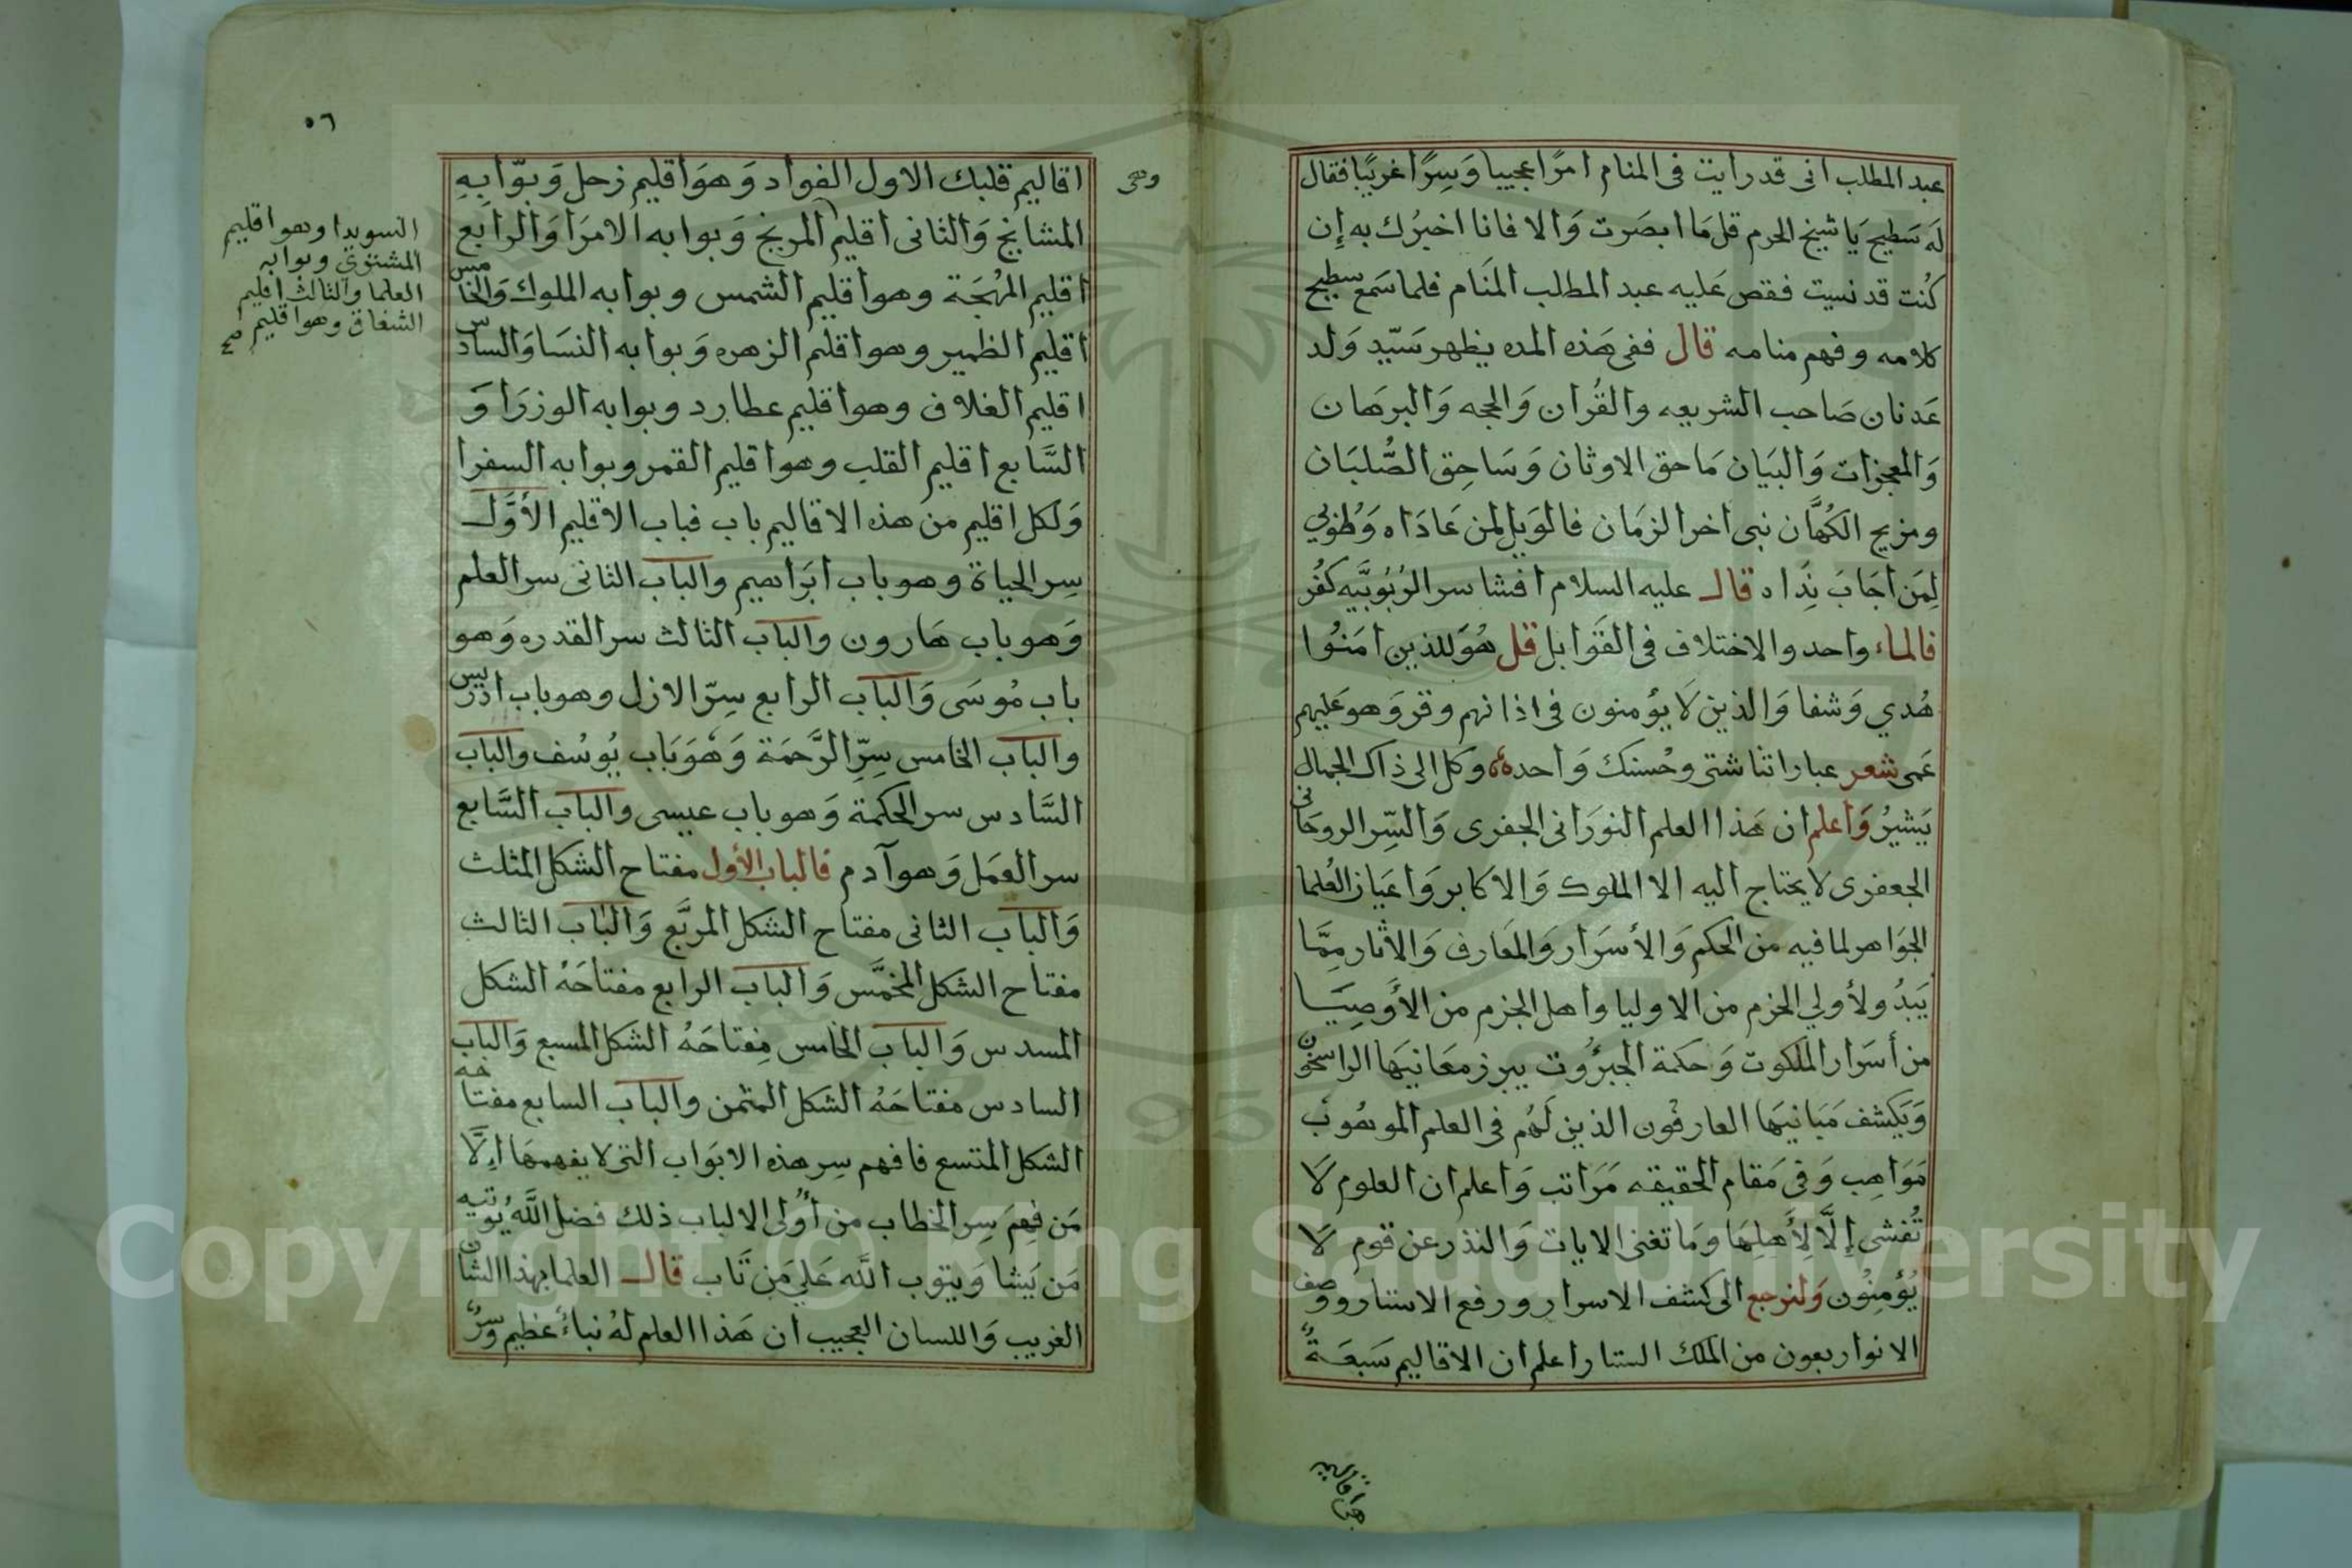 عبد المطلب انى قد رايت فى المنام امرًا عجيبا وَسِرًا غريبًا فقال
لَه سَطيح يَا شيخ الحرم قل مَا ابصَرت وَالا فانا اخبرُك به إِن
كُنت قد نسيت فقص عَليه عبد المطلب المنَام فلما سَمع سطيح
كلامه وفهم منامه قال ففى هَذه المده يظهر سَيّدِ وَلد
عَدنان صَاحب الشريعه والقُران وَالحجه وَالبرهَان
وَالمعجزات وَالبيَان مَاحق الاوثان وَسَاحِق الصُّلبَان
ومزيح الكُهَّان نبى اخر الزمَان فالوَيل لمن عَادَاه وَطُوبى
لِمَن اجَابَ نِدَاه قال عليه السلام افشا سر الرُبُوبَيَّه كفُر
فالماء واحد والاختلاف فى القَوابل قل هُوَ للذين امَنُوا
هُدي وَشفا وَالذين لَا يؤمنون فى اذانهم وقر وَهو عَليهم
عَمى شعر عباراتنا شتى وحُسنك وَاحد وكل الى ذاك الجمال
يَشيرُ وَاعلم ان هَذا العلم النورَانى الجفرى وَالسِّر الروحَانى
الجعفرى لا يحتاج اليه الا الملوك وَالاكابر وَاعيَان العُلما
الجوَاهر لما فيه من الحكم وَالأسرَار وَالمعَارف وَالاثار مِمَّا
يَبدُو لأولي الحزم من الاوليا واهل الجزم من الأوصِيَا
من أسرَار الملكوت وَحكمة الجبَرُوت يبرز معَانيهَا الراسخون
وَيَكشف مَبَانيهَا العارفُون الذين لَهُم فى العلم الموهُوب
مَوَاهِب وَفى مَقام الحقيقه مَرَاتب وَاعلم ان العلوم لَا
تُفشى إِلَّا لِأَهلِهَا ومَا تغنى الايات وَالنذر عن قوم لَا
يُؤمِنُون وَلنرجع الى كشف الاسرار ورفع الاستار ووصف
الانوار بعون من الملك الستار اعلم ان الاقاليم سَبعَةٌ
وهى
٥٦
اقاليم قلبك الاول الفواد وَهوَ اقليم زحل وَبوّابه
المشايخ وَالثانى اقليم المريخ وَبوابه الامرَا وَالرابع
اقليم المُهجَة وهو اقليم الشمس وبوابه الملوك وَالخامس
اقليم الظمير وهو اقلم الزهره وَبوابه النسَا وَالسادس
اقليم الغلاف وهو اقليم عطارد وبوابه الوزرَا وَ
السَّابع اقليم القلب وهو اقليم القمر وبوابه السفرا
وَلكل اقليم من هذه الاقاليم باب فباب الاقليم الأوَّل
سِر الحياة وهو باب ابرَاهيم والباب الثانى سر العلم
وَهو باب هَارون والباب الثالث سر القدره وَهو
باب مُوسَى وَالباب الرابع سِرّ الازل وهو باب ادريس
والباب الخامس سِرِّ الرَّحمَة وَهُوَ بَاب يُوسُف والباب
السَّادس سر الحكمة وَهو باب عيسى والباب السَّابع
سر العمَل وَهو آدم فالباب الأول مفتاح الشكل المثلث
وَالباب الثانى مفتاح الشكل المربَّع وَالبَاب الثالث
مفتاح الشكل المخمَّس وَالباب الرابع مفتاحَهُ الشكل
المسدس وَالباب الخامس مِفتاحَهُ الشكل المسبع وَالباب
السادس مفتاحَهُ الشكل المثمن والباب السابع مفتاحه
الشكل المتسع فافهم سِر هذه الابوَاب التى لا يفهمهَا اِلَّا
مَن فهِمَ سِر الخطاب من أولى الالباب ذلك فضل اللَّه يُوتيه
مَن يَشا وَيتوب اللَّه عَلى مَن تَاب قال العلما بهذا الشان
الغريب وَاللسان العجيب ان هَذا العلم لهُ نباءٌ عظيم وسرٌ
السويدا وهو اقليم
المشتري وبوابه
العلما والثالث اقليم
الشغاف وهو اقليم
صح